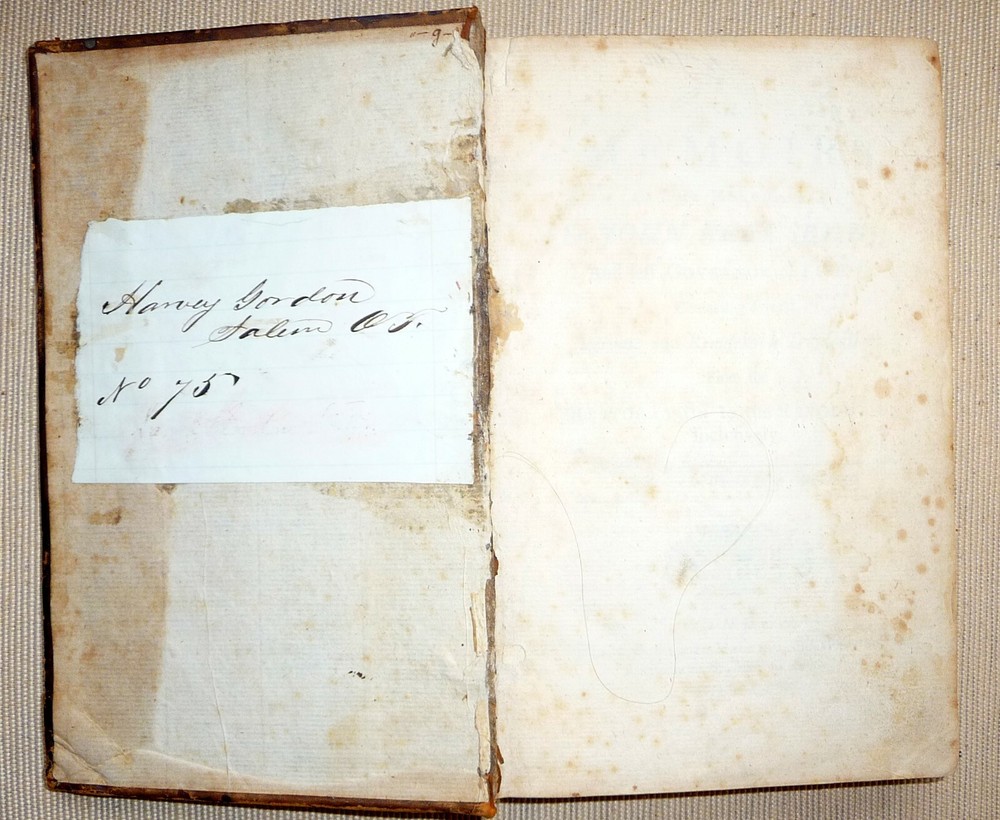 Harvey Gordon
Salem O T.
No 75